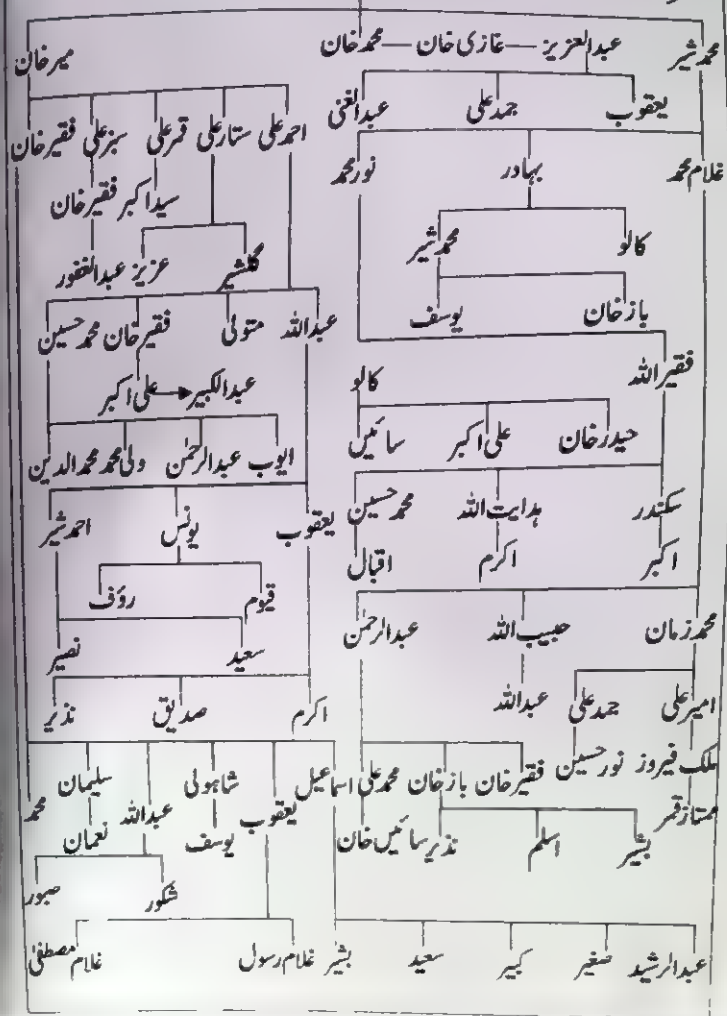 محمد شیر عبدالعزیز — غازی خان — محمد خان میر خان
یعقوب جمد علی عبدالغنی
احمد علی ستار علی قمر علی سبز علی فقیر خان
غلام محمد بہادر نور محمد
سید اکبر فقیر خان
کالو محمد شیر گلشیر عزیز عبدالغفور
باز خان یوسف عبداللہ متولی فقیر خان محمد حسین
فقیر اللہ کالو عبدالکبیر علی اکبر
حیدر خان علی اکبر سائیں ایوب عبدالرحمٰن ولی محمد محمد الدین
سکندر ہدایت اللہ محمد حسین یعقوب یونس احمد شیر
اکبر اکرم اقبال
قیوم رؤف
محمد زمان حبیب اللہ عبدالرحمٰن سعید نصیر
امیر علی جمد علی عبداللہ اکرم صدیق نذیر
ملک فیروز نور حسین فقیر خان باز خان محمد علی اسماعیل یعقوب شاہولی عبداللہ سلیمان محمد
ممتاز قمر
بشیر اسلم نذیر سائیں خان یوسف نعمان
شکور صبور
عبدالرشید صغیر کبیر سعید بشیر غلام رسول غلام مصطفیٰ